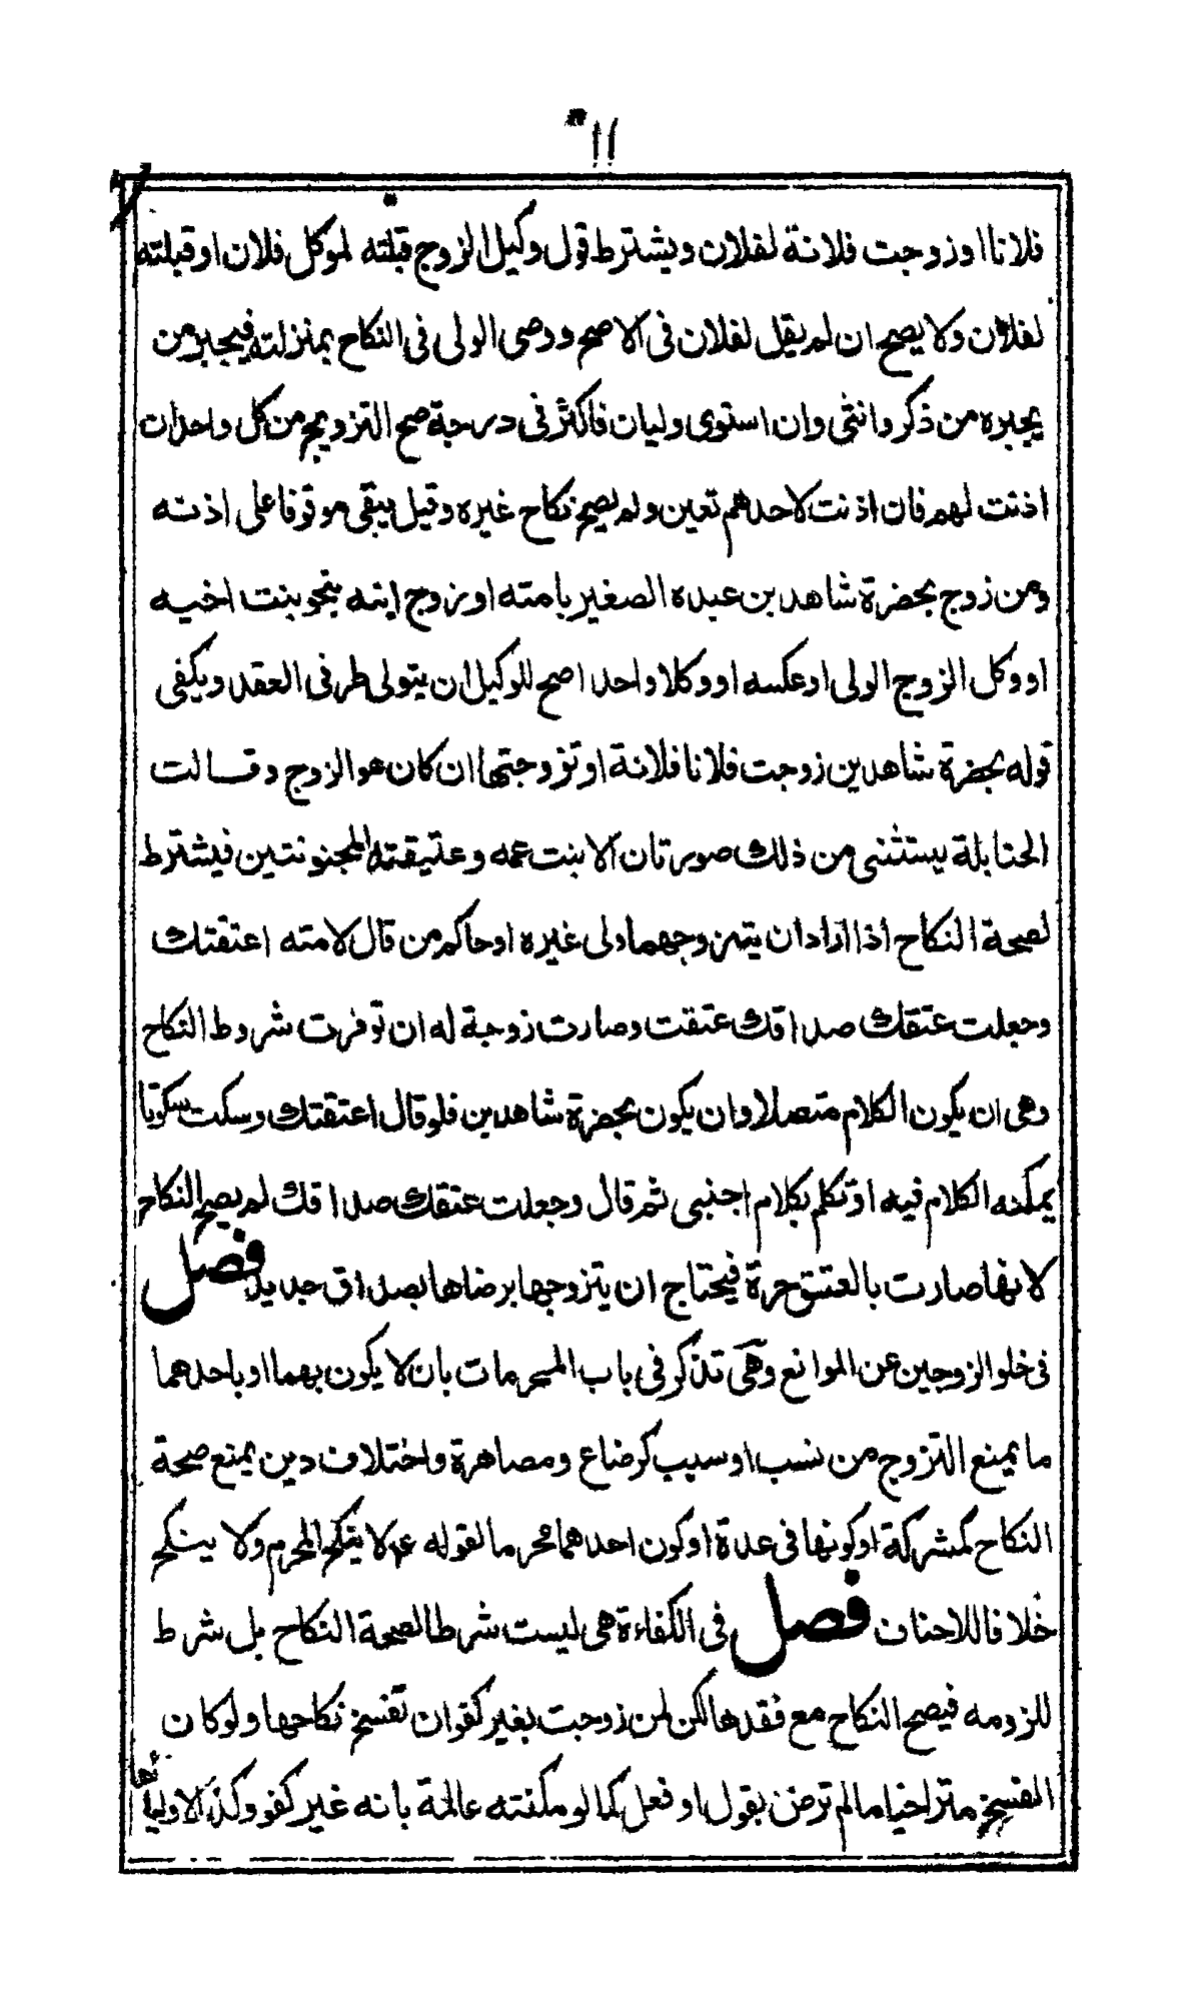 ١١
فلانا اوزوجت فلانة لفلان ويشترط قول وكيل الزوج قبلته لموكلى فلان اوقبلته
لفلان ولا يصح ان لم يقل لفلان فى الاصح ووصى الولى فى النكاح بمنزلته فيجبر من
يجبره من ذكر وانثى وان استوى وليان فاكثر فى درجة صح التزويج من كل واحد ان
اذنت لهم فان اذنت لاحدهم تعين ولم يصح نكاح غيره وقيل يبقى موقوفا على اذنه
ومن زوج بحضرة شاهدين عبده الصغير بامته اوزوج ابنه بنحو بنت اخيه
او وكل الزوج الولى اوعكسه او وكلا واحدا صح للوكيل ان يتولى طرفى العقد ويكفى
قوله بحضرة شاهدين زوجت فلانا فلانة او تزوجتها ان كان هو الزوج وقالت
الحنابلة يستثنى من ذلك صورتان الا بنت عمه وعتيقته المجنونتين فيشترط
لصحة النكاح اذا اراد ان يتزوجهما ولى غيره اوحاكم من قال لامته اعتقتك
وجعلت عتقك صداقك عتقت وصارت زوجة له ان توفرت شروط النكاح
وهى ان يكون الكلام متصلا وان يكون بحضرة شاهدين فلوقال اعتقتك وسكت سكوتا
يمكنه الكلام فيه اوتكلم بكلام اجنبى ثم قال وجعلت عتقك صداقك لم يصح النكاح
لانها صارت بالعتق حرة فيحتاج ان يتزوجها برضاها بصداق جديد فصل
فى خلو الزوجين عن الموانع وهى تذكر فى باب المحرمات بان لا يكون بهما او باحدهما
ما يمنع التزوج من نسب اوسبب كرضاع ومصاهرة واختلاف دين يمنع صحة
النكاح كمشركة اوكونها فى عدة اوكون احدهما محرما لقوله عم لا ينكح المحرم ولا ينكح
خلافا للاحناف فصل فى الكفاءة هى ليست شرطا لصحة النكاح بل شرط
للزومه فيصح النكاح مع فقدها لكن لمن زوجت بغير كفو ان تفسخ نكاحها ولوكان
الفسخ متراخيا ما لم ترض بقول اوفعل كما لو مكنته عالمة بانه غير كفو وكذا لاوليائها